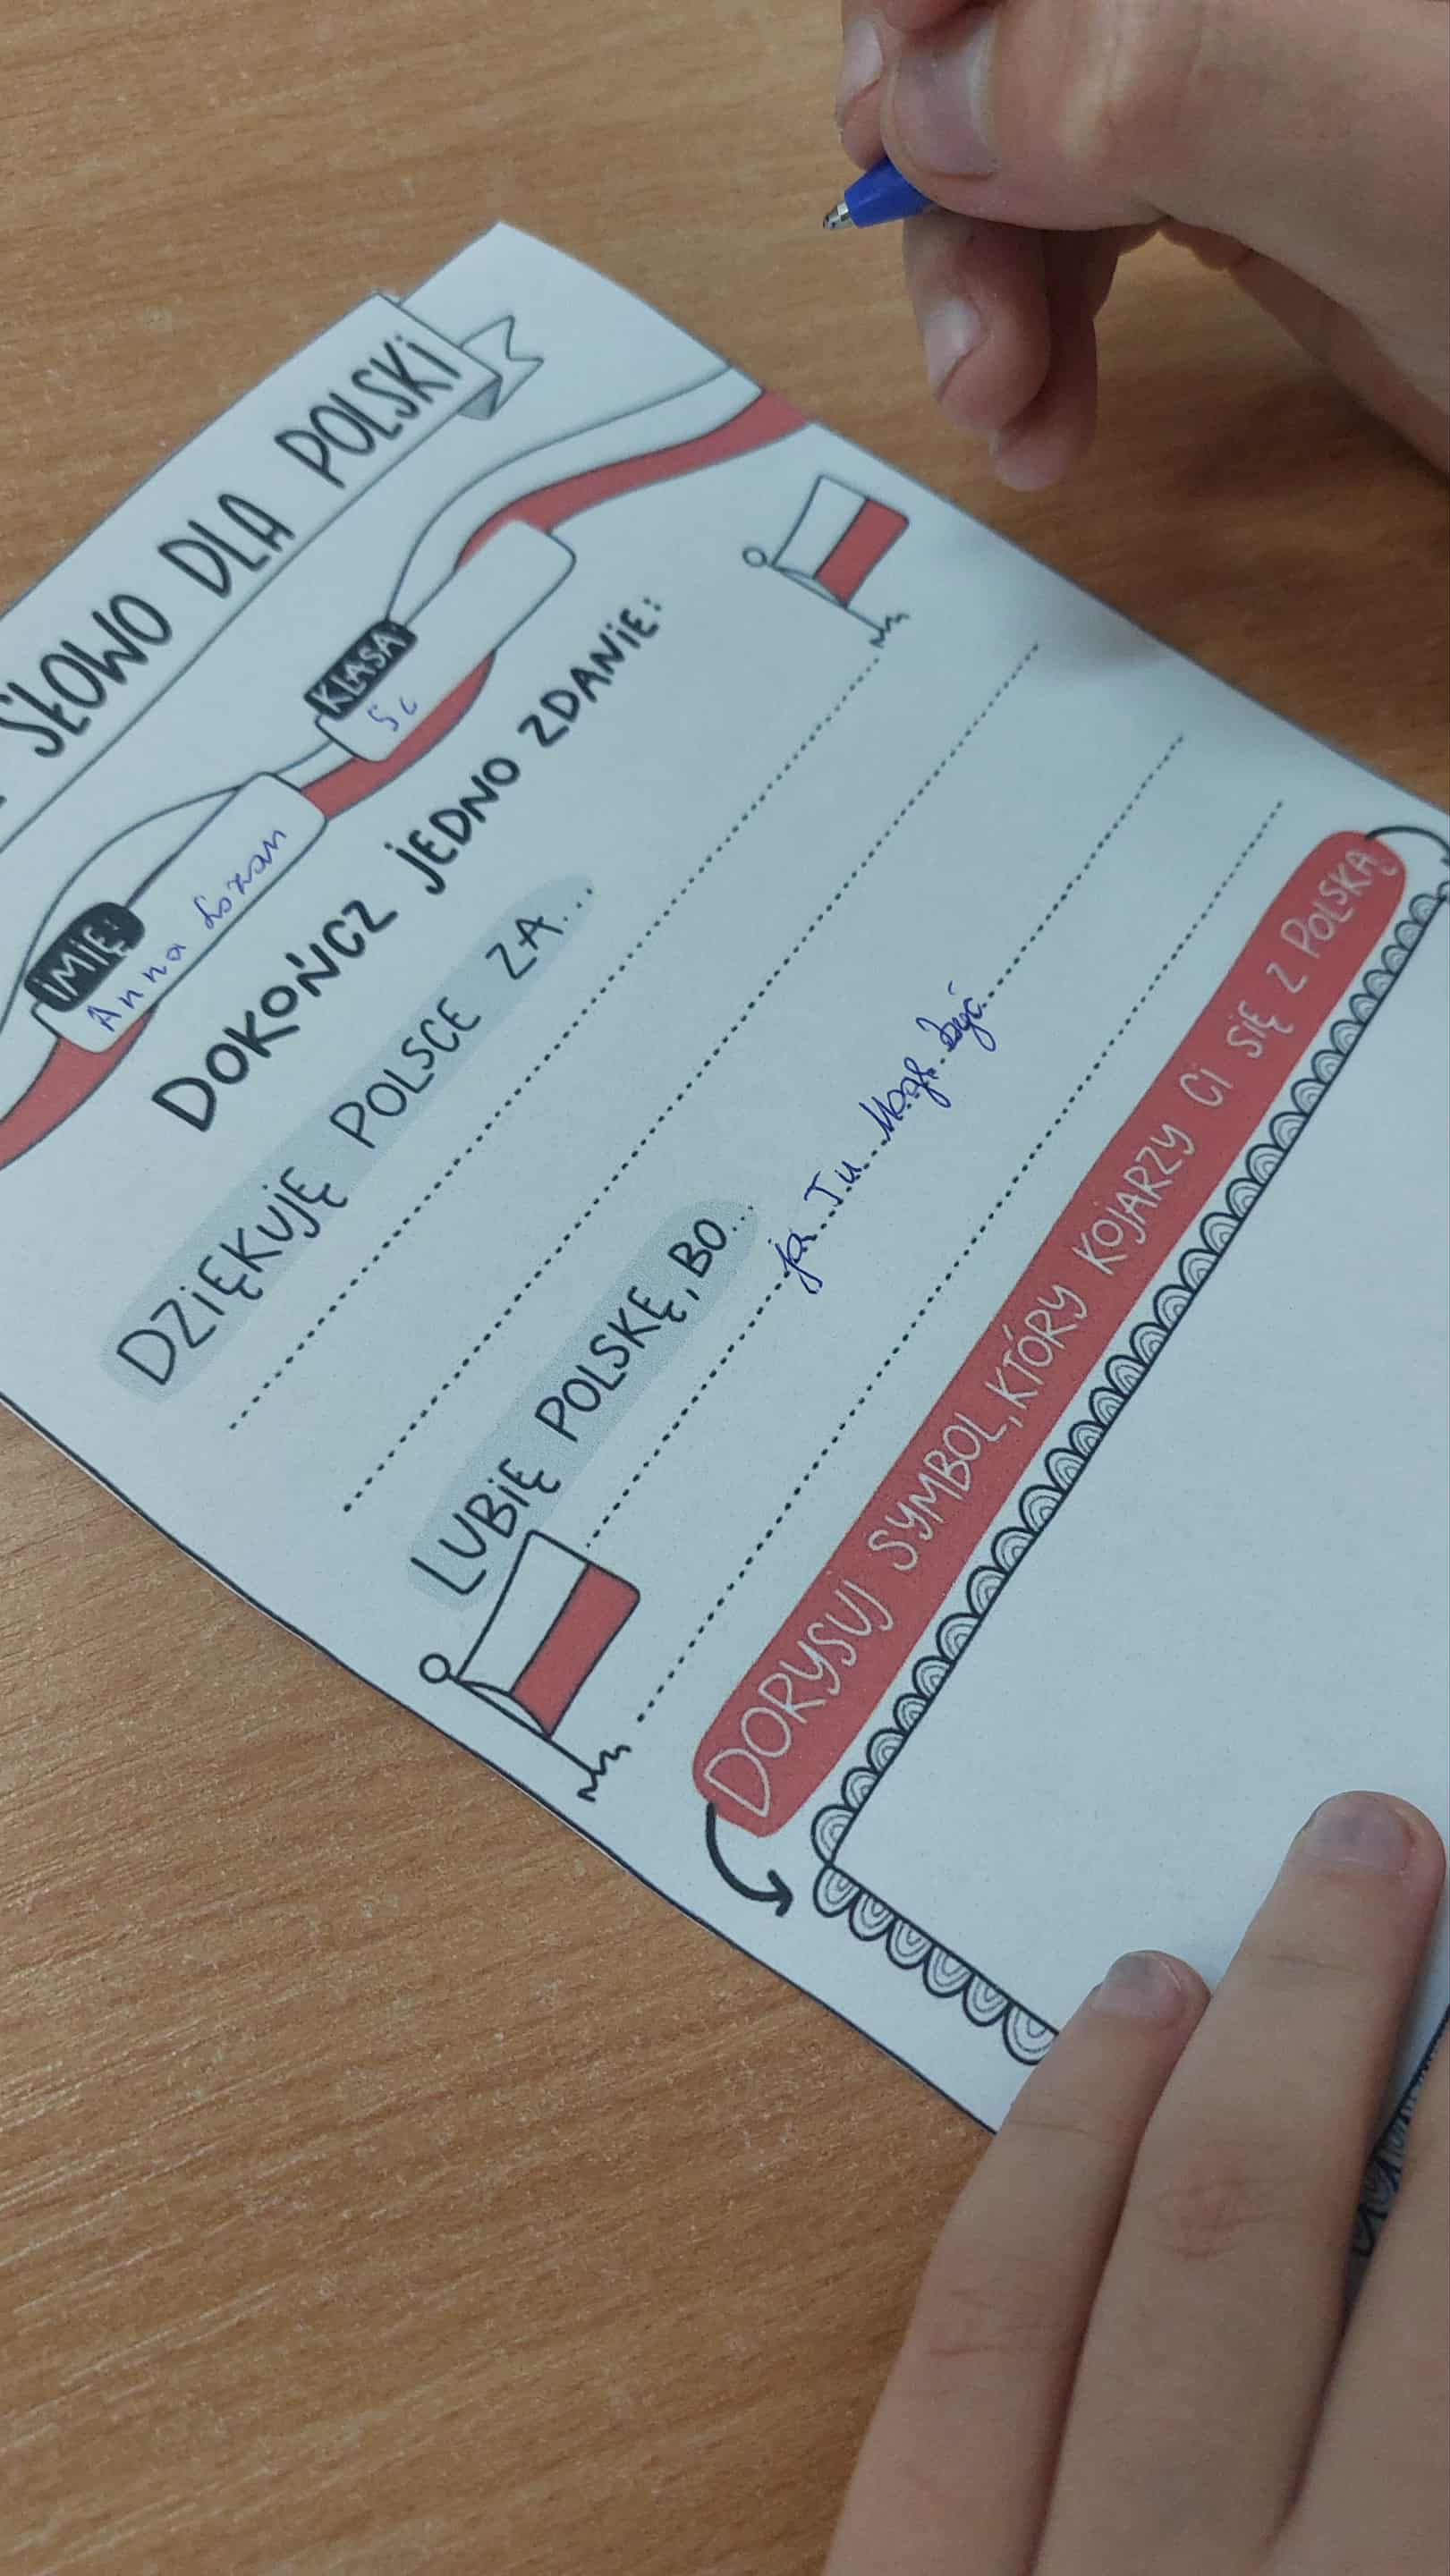 SŁOWO DLA POLSKI
IMIĘ:
Anna
KLASA
5c
DOKOŃCZ JEDNO ZDANIE:
DZIĘKUJĘ POLSCE ZA...
LUBIĘ POLSKĘ, BO...
ja Tu Mogę być
DORYSUJ SYMBOL, KTÓRY KOJARZY CI SIĘ Z POLSKĄ